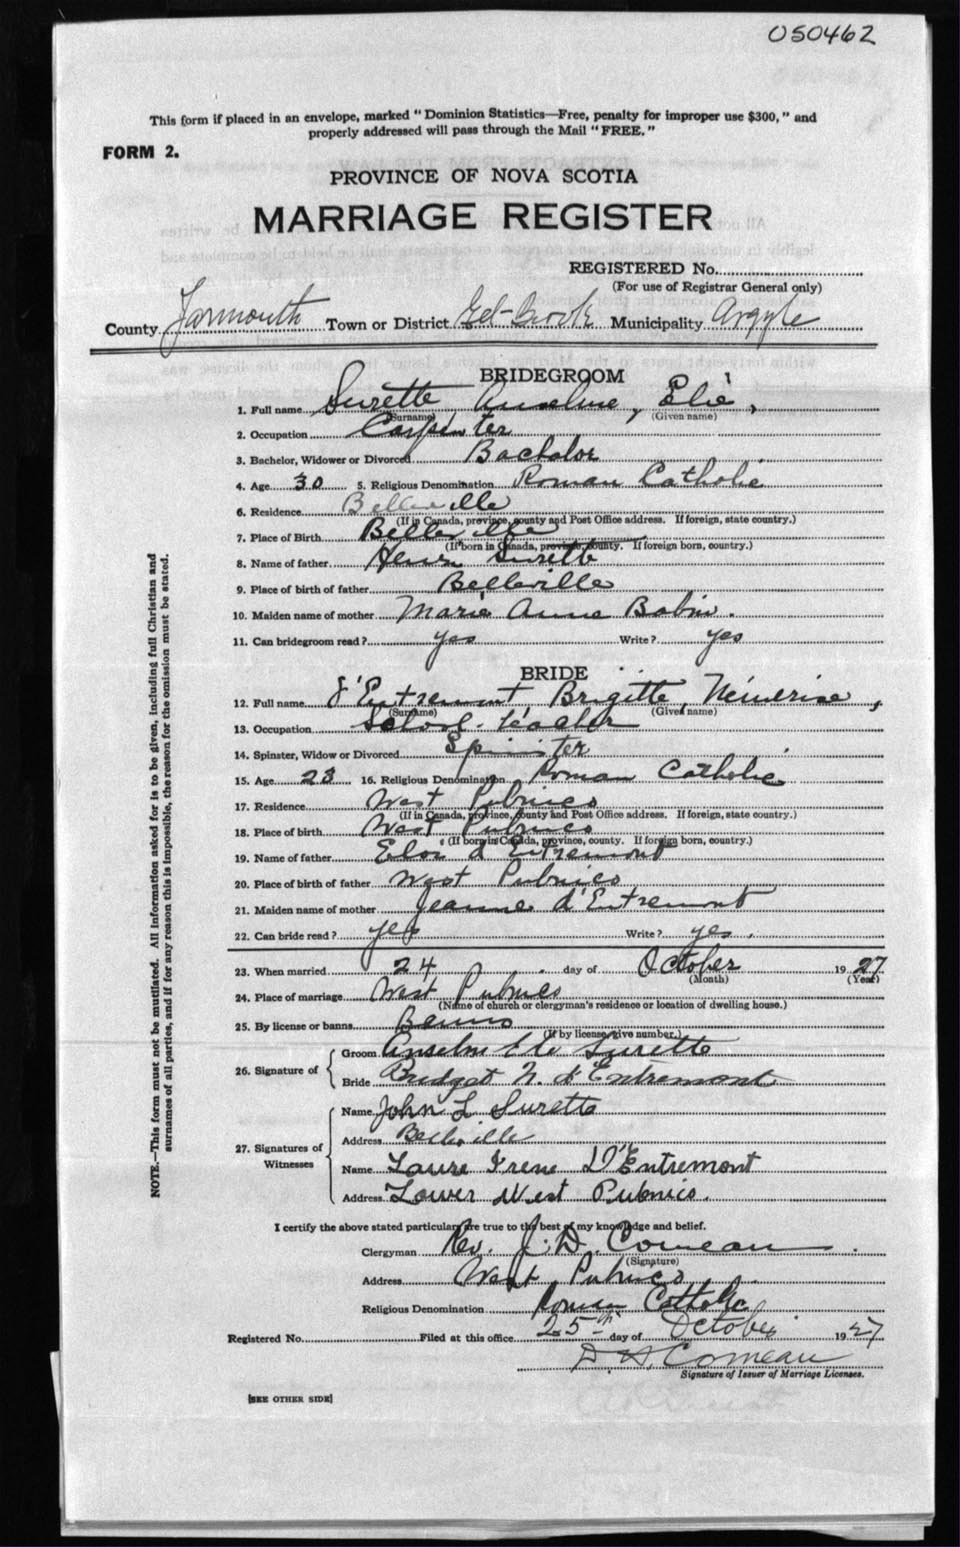 050462
This form if placed in an envelope, marked " Dominion Statistics—Free, penalty for improper use $300, " and
properly addressed will pass through the Mail " FREE. "
FORM 2.
PROVINCE OF NOVA SCOTIA
MARRIAGE REGISTER
REGISTERED No.
(For use of Registrar General only)
County Yarmouth Town or District Eel-Brook Municipality Argyle
BRIDEGROOM
1. Full name Surette Anselme, Elié,
(Surname) (Given name)
2. Occupation Carpinter
3. Bachelor, Widower or Divorced Bachelor
4. Age 30 5. Religious Denomination Roman Catholic
6. Residence Belleville
(If in Canada, province, county and Post Office address. If foreign, state country.)
7. Place of Birth Belleville
(If born in Canada, province, county. If foreign born, country.)
8. Name of father Henri Surette
9. Place of birth of father Belleville
10. Maiden name of mother Marie Anne Babin.
11. Can bridegroom read? yes Write? yes
BRIDE
12. Full name d'Entremont Brigitte,
(Surname) (Given name)
13. Occupation School-teacher
14. Spinster, Widow or Divorced Spinster
15. Age 23 16. Religious Denomination Roman Catholic
17. Residence West Pubnico
(If in Canada, province, county and Post Office address. If foreign, state country.)
18. Place of birth West Pubnico
(If born in Canada, province, county. If foreign born, country.)
19. Name of father d'Entremont
20. Place of birth of father West Pubnico
21. Maiden name of mother Jeanne d'Entremont
22. Can bride read? yes Write? yes.
23. When married 24 day of October 1927
(Month) (Year)
24. Place of marriage West Pubnico
(Name of church or clergyman's residence or location of dwelling house.)
25. By license or banns
(If by license, give number.)
26. Signature of
Groom Anselm Elie Surette
Bride Bridget N. d'Entremont
27. Signatures of Witnesses
Name John L Surette
Address Belleville
Name Laure Irene D'Entremont
Address Lower West Pubnico.
I certify the above stated particulars are true to the best of my knowledge and belief.
Clergyman Rev. J. D. Comeau.
(Signature)
Address West Pubnico
Religious Denomination Roman Catholic
Registered No. Filed at this office 25th day of October 1927
Comeau
Signature of Issuer of Marriage Licenses.
[SEE OTHER SIDE]
NOTE.—This form must not be mutilated. All information asked for is to be given, including full Christian and
surnames of all parties, and if for any reason this is impossible, the reason for the omission must be stated.